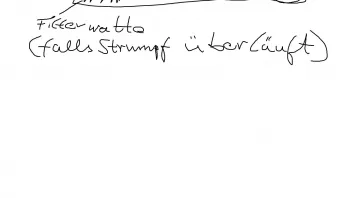 Filterwatte
(falls Strumpf überläuft)